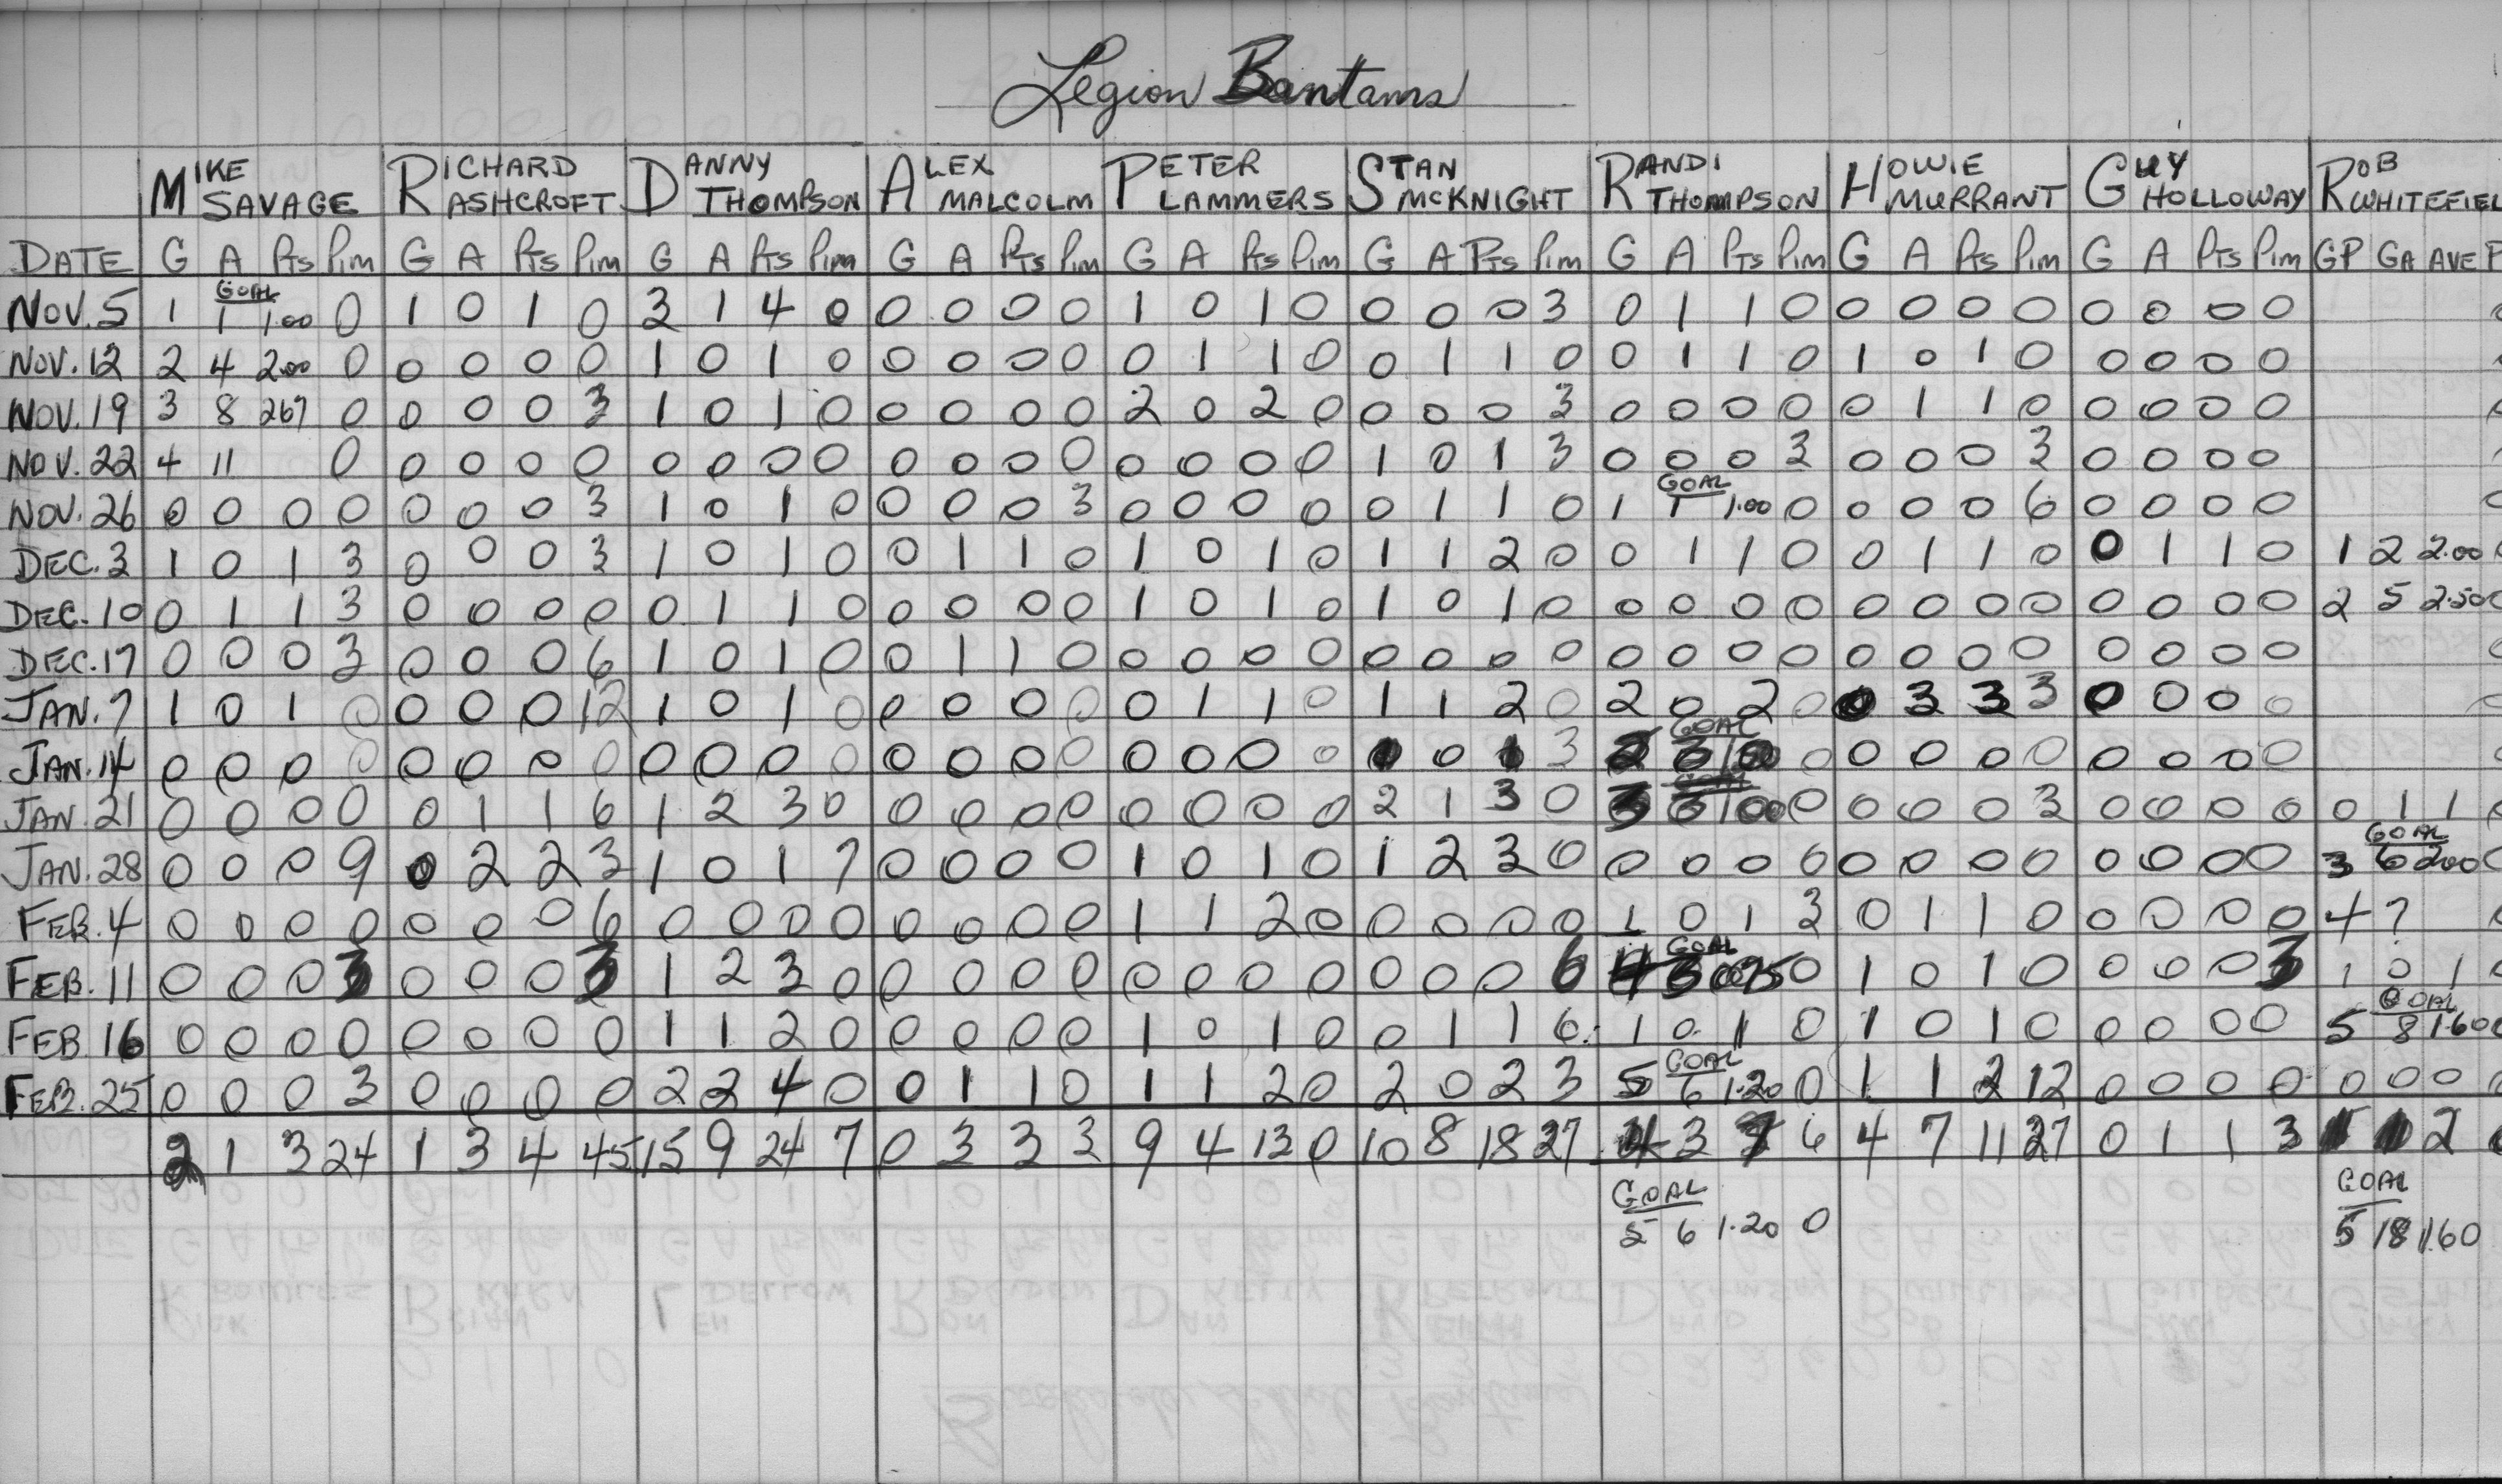 Legion Bantams
MIKE SAVAGE RICHARD ASHCROFT DANNY THOMPSON ALEX MALCOLM PETER LAMMERS STAN MCKNIGHT RANDI THOMPSON HOWIE MURRANT GUY HOLLOWAY ROB WHITEFIEL
DATE G A Pts Pim G A Pts Pim G A Pts Pim G A Pts Pim G A Pts Pim G A Pts Pim G A Pts Pim G A Pts Pim G A Pts Pim GP GA AVE P
GOAL
NOV. 5 1 1 1.00 0 1 0 1 0 3 1 4 0 0 0 0 0 1 0 1 0 0 0 0 3 0 1 1 0 0 0 0 0 0 0 0 0
NOV. 12 2 4 2.00 0 0 0 0 0 1 0 1 0 0 0 0 0 0 1 1 0 0 1 1 0 0 1 1 0 1 0 1 0 0 0 0 0
NOV. 19 3 8 267 0 0 0 0 3 1 0 1 0 0 0 0 0 2 0 2 0 0 0 0 3 0 0 0 0 0 1 1 0 0 0 0 0
NOV. 22 4 11 0 0 0 0 0 0 0 0 0 0 0 0 0 0 0 0 0 1 0 1 3 0 0 0 3 0 0 0 3 0 0 0 0
GOAL
NOV. 26 0 0 0 0 0 0 0 3 1 0 1 0 0 0 0 3 0 0 0 0 0 1 1 0 1 1 1.00 0 0 0 0 6 0 0 0 0
DEC. 3 1 0 1 3 0 0 0 3 1 0 1 0 0 1 1 0 1 0 1 0 1 1 2 0 0 1 1 0 0 1 1 0 0 1 1 0 1 2 2.00
DEC. 10 0 1 1 3 0 0 0 0 0 1 1 0 0 0 0 0 1 0 1 0 1 0 1 0 0 0 0 0 0 0 0 0 0 0 0 0 2 5 2.50
DEC. 17 0 0 0 3 0 0 0 6 1 0 1 0 0 1 1 0 0 0 0 0 0 0 0 0 0 0 0 0 0 0 0 0 0 0 0 0
JAN. 7 1 0 1 0 0 0 0 12 1 0 1 0 0 0 0 0 0 1 1 0 1 1 2 0 2 0 2 0 0 3 3 3 0 0 0 0
GOAL
JAN. 14 0 0 0 0 0 0 0 0 0 0 0 0 0 0 0 0 0 0 0 0 1 0 1 3 0 0 0 0 0 0 0 0 0
JAN. 21 0 0 0 0 0 1 1 6 1 2 3 0 0 0 0 0 0 0 0 0 2 1 3 0 0 0 0 0 3 0 0 0 0 0 1 1
GOAL
JAN. 28 0 0 0 9 0 2 2 3 1 0 1 7 0 0 0 0 1 0 1 0 1 2 3 0 0 0 0 0 0 0 0 0 0 0 0 0 3 6 200
FEB. 4 0 0 0 0 0 0 0 6 0 0 0 0 0 0 0 0 1 1 2 0 0 0 0 0 1 0 1 3 0 1 1 0 0 0 0 0 4 7
GOAL
FEB. 11 0 0 0 3 0 0 0 3 1 2 3 0 0 0 0 0 0 0 0 0 0 0 0 6 0 1 0 1 0 0 0 0 3 1 0 1
GOAL
FEB. 16 0 0 0 0 0 0 0 0 1 1 2 0 0 0 0 0 1 0 1 0 0 1 1 6 1 0 1 0 1 0 1 0 0 0 0 0 5 8 1.60
GOAL
FEB. 25 0 0 0 3 0 0 0 0 2 2 4 0 0 1 1 0 1 1 2 0 2 0 2 3 5 6 1.20 0 1 1 2 12 0 0 0 0 0 0 0
2 1 3 24 1 3 4 45 15 9 24 7 0 3 3 3 9 4 13 0 10 8 18 27 4 3 7 6 4 7 11 27 0 1 1 3 2
GOAL GOAL
5 6 1.20 0 5 18 1.60